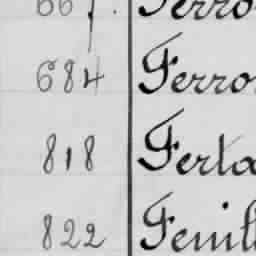 667. Ferro
684 Ferro
818 Ferta
822 Feuill